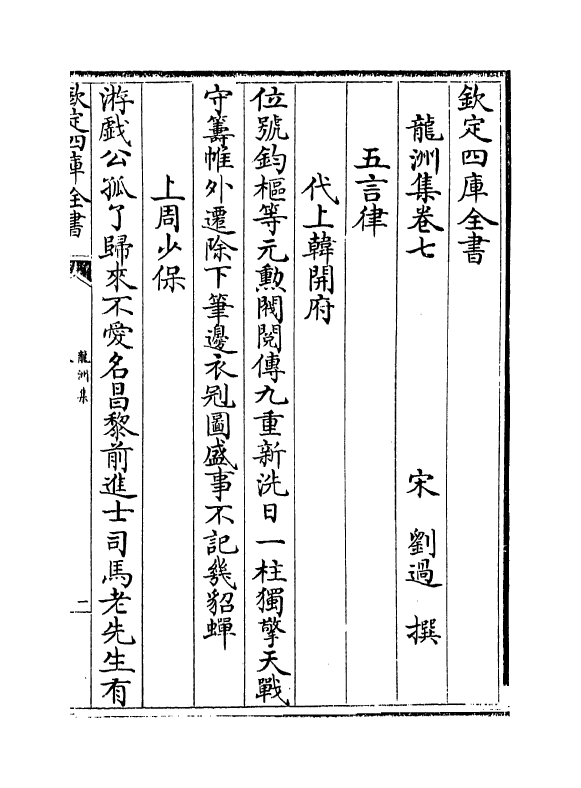 欽定四庫全書
龍洲集卷七
宋 劉過 撰
五言律
代上韓開府
位號鈞樞等元勲閥閲傳九重新洗日一柱獨擎天戰
守籌帷外遷除下筆邊衣冠圖盛事不記幾貂蟬
上周少保
游戲公孤了歸來不愛名昌黎前進士司馬老先生有
欽定四庫全書
龍洲集